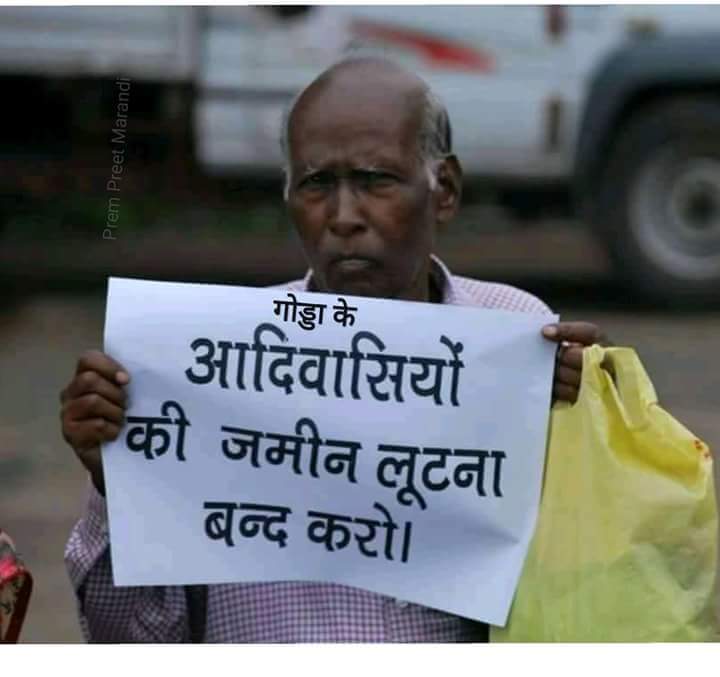 Prem Preet Marandi
गोड्डा के
आदिवासियों
की जमीन लूटना
बन्द करो।